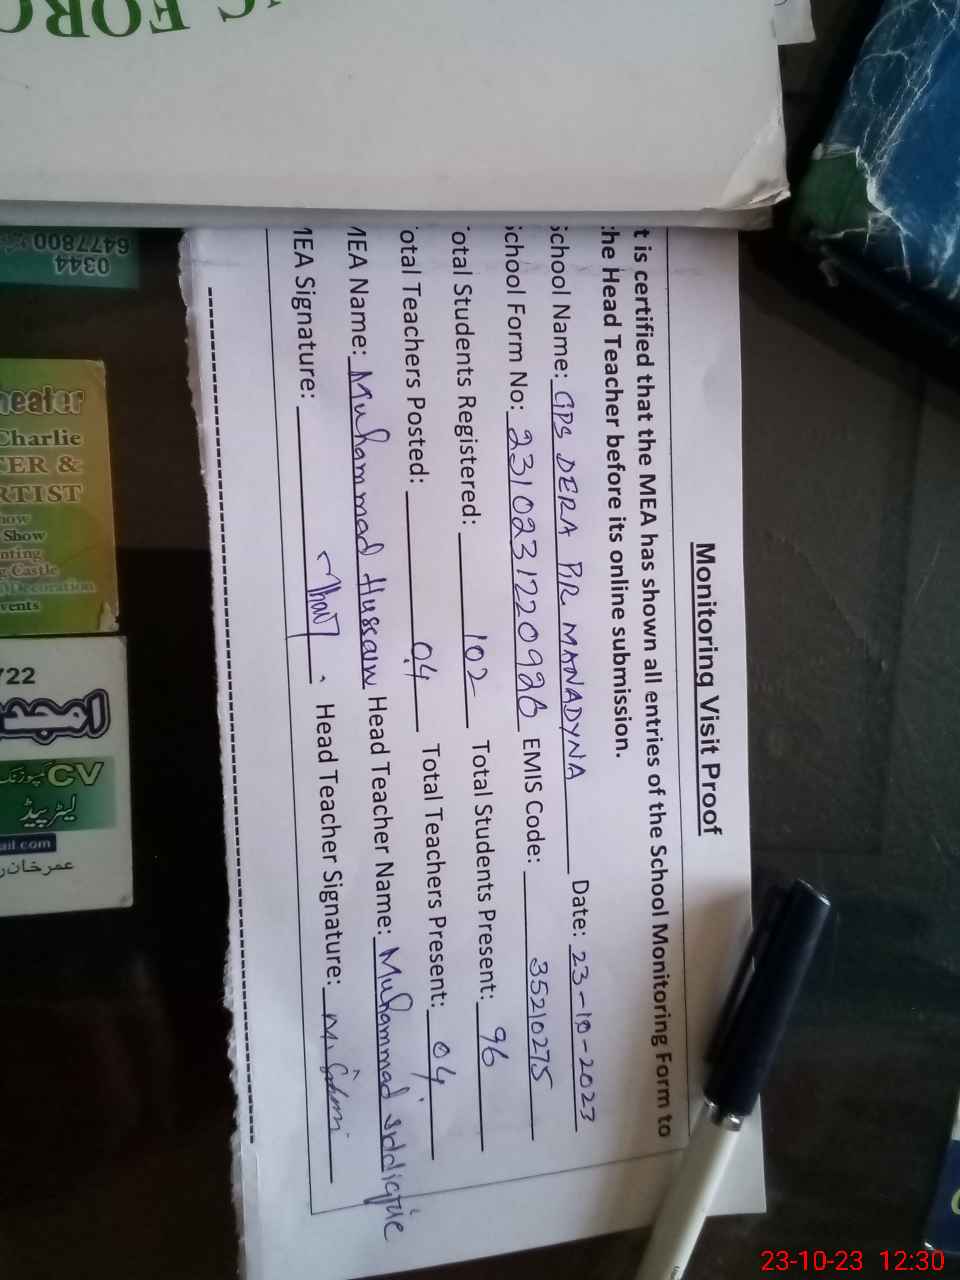 Monitoring Visit Proof
t is certified that the MEA has shown all entries of the School Monitoring Form to
he Head Teacher before its online submission.
chool Name: GPS DERA PIR MANADYNA Date: 23-10-2023
chool Form No: 2310231220926 EMIS Code: 35210275
otal Students Registered: 102 Total Students Present: 96
otal Teachers Posted: 04 Total Teachers Present: 04
MEA Name: Muhammad Hussain Head Teacher Name: Muhammad siddique
MEA Signature: Head Teacher Signature:
0344
6477800
heater
Charlie
ER &
RTIST
how
Show
nting
g Castle
Decoration
vents
722
امجد
CV کمپوزنگ
لیٹر پیڈ
ail.com
عمر خان
C FORC
23-10-23 12:30